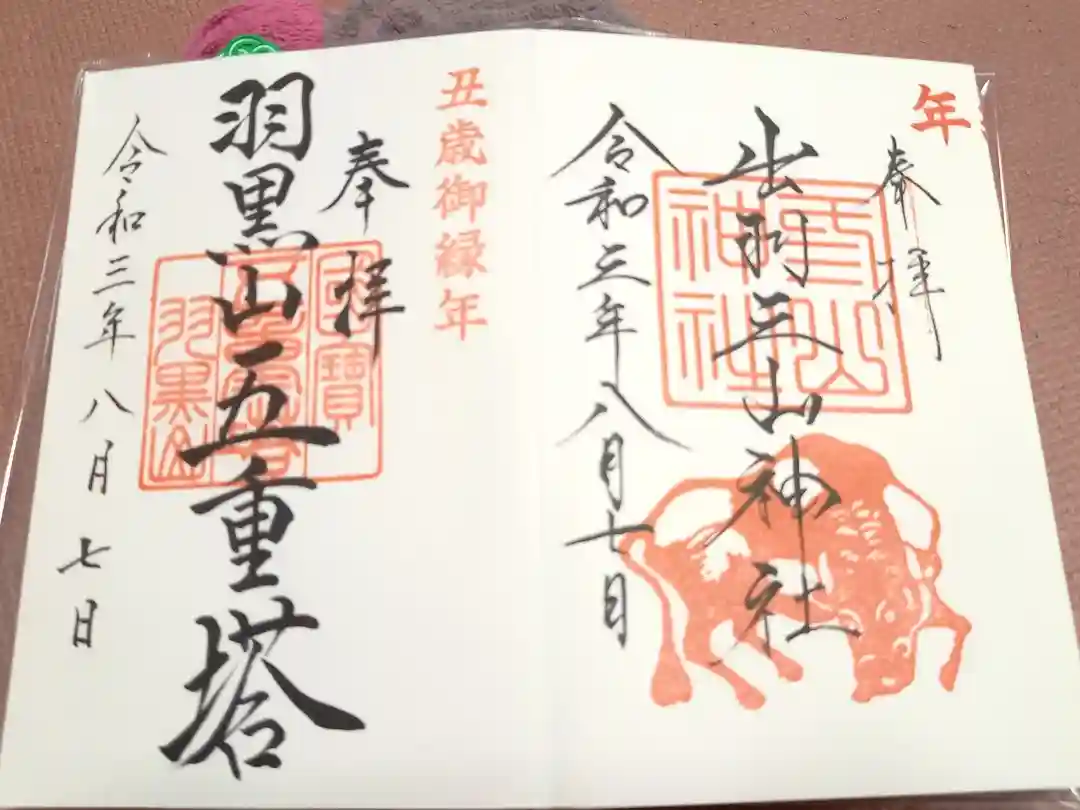 年
奉拝
出羽三山神社
月山
神社
令和三年八月七日
丑歳御縁年
奉拝
國寶
羽黒山五重塔
羽黒山
令和三年八月七日